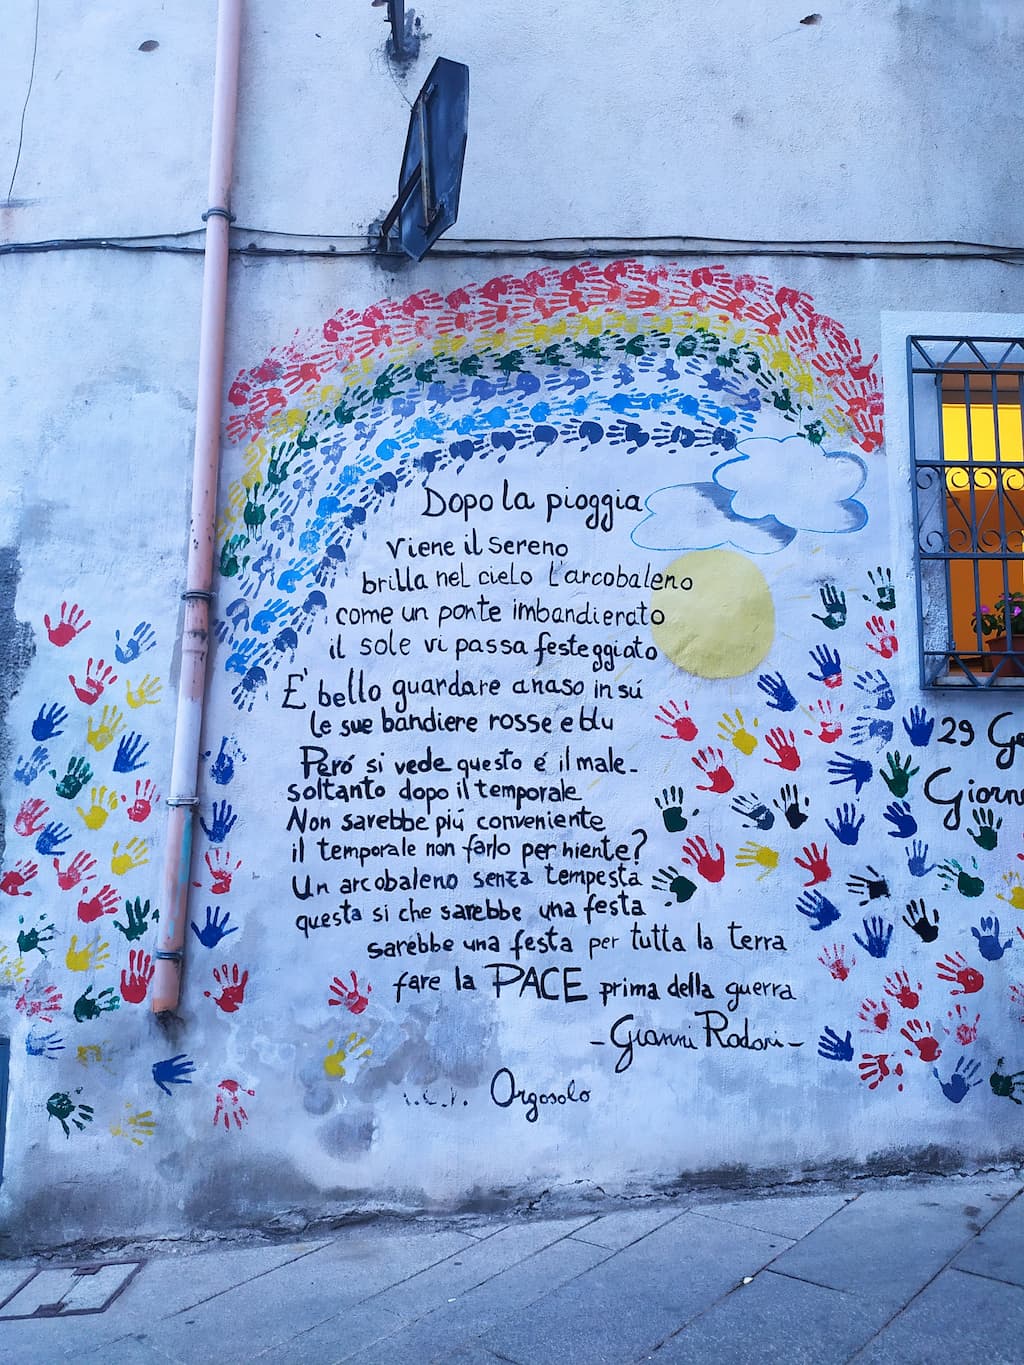 Dopo la pioggia
viene il sereno
brilla nel cielo l'arcobaleno
come un ponte imbandierato
il sole vi passa festeggiato
E' bello guardare a naso in sú
le sue bandiere rosse e blu
Peró si vede questo é il male-
soltanto dopo il temporale
Non sarebbe piú conveniente
il temporale non farlo per niente?
Un arcobaleno senza tempesta
questa si che sarebbe una festa
sarebbe una festa per tutta la terra
fare la PACE prima della guerra
- Gianni Rodari -
Orgosolo
29 Ge
Giorn